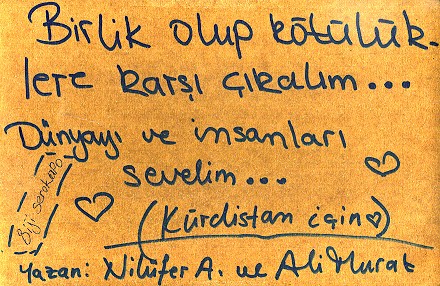 Birlik olup kötülük-
lere karşı çıkalım...
Dünyayı ve insanları
sevelim...
(Kürdistan için)
Biji serokapo
Yazan: Nilüfer A. ve Ali Murat